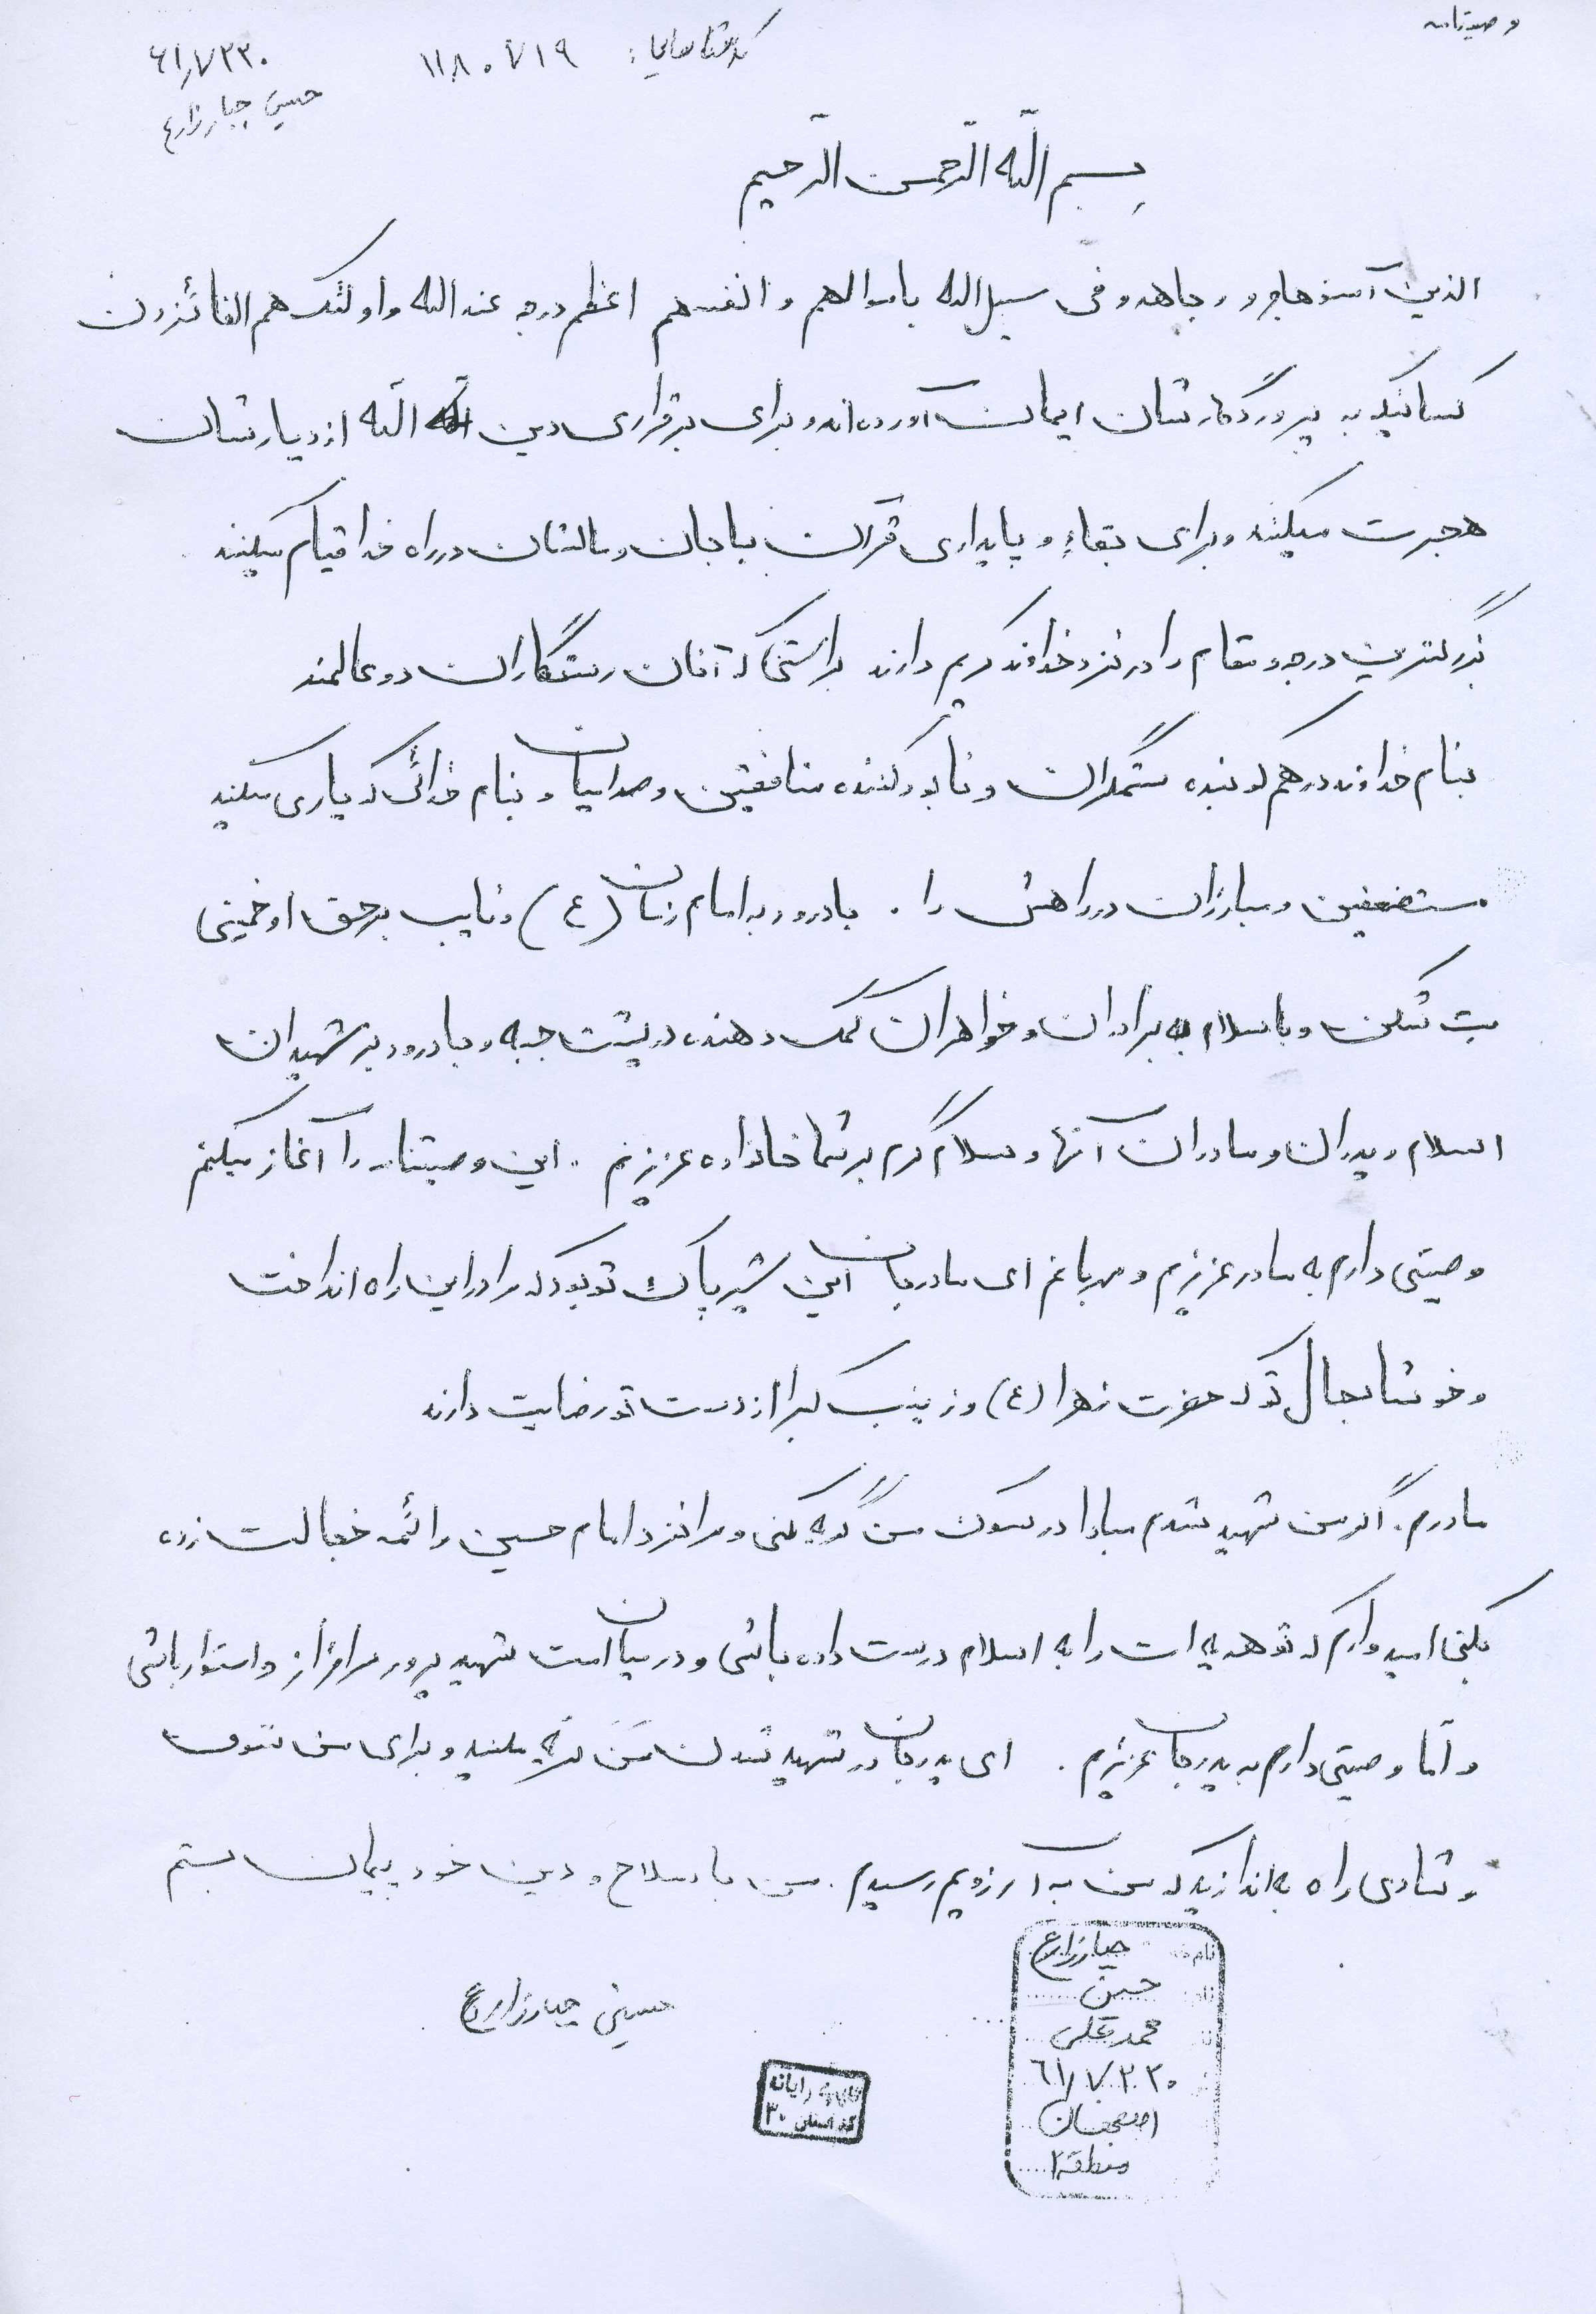 وصیتنامه
کد شناسایی: ۱۱۸۰۷۱۹
۶۱٫۷۲۳۰
حسین چیارزارع
بسم الله الرّحمن الرّحیم
الذین آمنو هاجرو و جاهدو فی سبیل الله باموالهم و انفسهم اعظم درجه عند الله و اولئک هم الفائزون
کسانیکه به پروردگارشان ایمان آورده‌اند و برای برقراری دین الله از دیارشان
هجرت میکنند و برای بقاء و پایداری قرآن با جان و مالشان در راه خدا قیام میکنند
بزرگترین درجه و مقام را در نزد خداوند کریم دارند براستی که آنان رستگاران دو عالمند
بنام خداوند درهم کوبنده ستمگران و نابود کننده منافقین و صدامیان و بنام خدائی که یاری میکند
مستضعفین و مبارزان در راهش را . با درود به امام زمان (ع) و نایب برحق او خمینی
بت شکن و با سلام به برادران و خواهران کمک دهنده در پشت جبهه و با درود بر شهیدان
اسلام و پدران و مادران آنها و سلام گرم بر شما خانواده عزیزم . این وصیتنامه را آغاز میکنم
وصیتی دارم به مادر عزیزم و مهربانم ای مادر جان این شیر پاک تو بود که مرا در این راه انداخت
و خوشا بحال تو که حضرت زهرا (ع) و زینب کبرا از دست تو رضایت دارند
مادرم . اگر من شهید شدم مبادا در سوگ من گریه کنی و مرا نزد امام حسین و ائمه خجالت زده
بکنی امیدوارم که تو هدیه ات را به اسلام درست داده باشی و در میان امت شهید پرور سرافراز و استوار باشی
و امّا وصیتی دارم به پدر جان عزیزم . ای پدر جان در شهید شدن من گریه مکنید و برای من شوق
و شادی راه به اندازید که من به آرزویم رسیدم . من با سلاح و دین خود پیمان بستم
حسین چیارزارع
نام
چیارزارع
نام
حسین
محمد علی
۶۱٫۷۲۳۰
اصفهان
منطقه ۲
رایانه
کد استان ۳۰